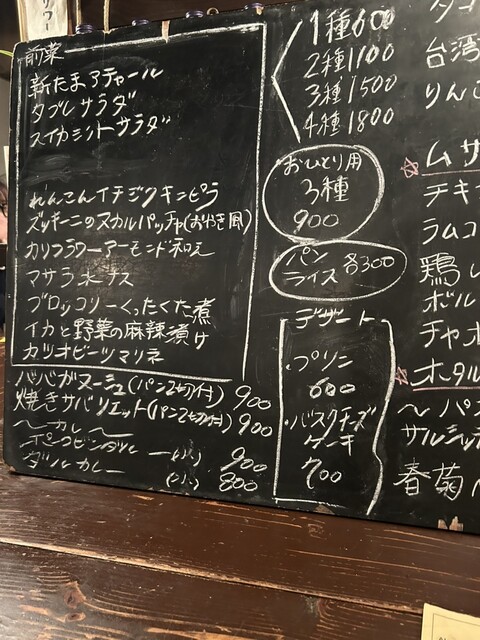 前菜
新たまアチャール
タブレサラダ
スイカミントサラダ
れんこんイチジクキンピラ
ズッキーニのヌカルパッチャ(おやき風)
カリフラワーアーモンド和え
マサラポテサ
ブロッコリーくったくた煮
イカと野菜の麻辣漬け
カツオビーツマリネ
ババガヌーシュ(パン2切付) 900
焼きサバリエット(パン2切付) 900
〜カレー〜
ポークビンダルー(小) 900
ダルカレー (小) 800
1種600
2種1100
3種1500
4種1800
おひとり用
3種
900
パン
ライス 各300
デザート
・プリン
600
・バスクチーズ
ケーキ
700
台湾
りんご
☆ムサ
チキ
ラムコ
鶏レ
ボル
チャオ
☆ホタル
〜パン
サルシッ
春菊